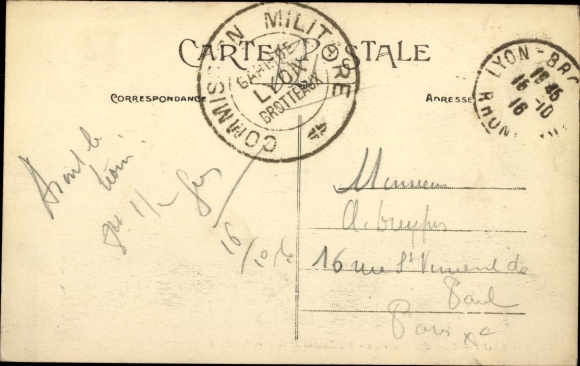 CARTE POSTALE
COMMISSION MILITAIRE
GARE DE
LYON
BROTTEAUX
LYON-BRO
18 45
16 -10
16
RHÔNE
CORRESPONDANCE
ADRESSE
Avant le
16/10/16
Monsieur
A. Dreyfus
16 rue St Vincent de
Paul
Paris Xe